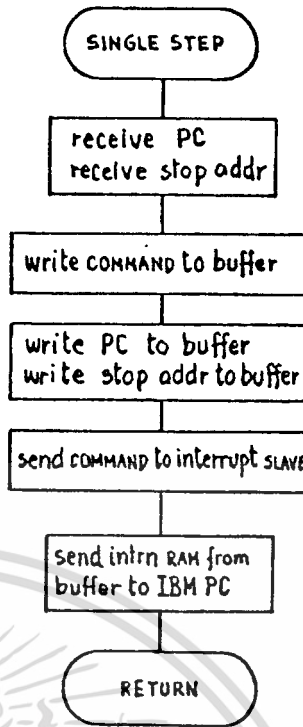 SINGLE STEP
receive PC
receive stop addr
write COMMAND to buffer
write PC to buffer
write stop addr to buffer
send COMMAND to interrupt SLAVE
send intrn RAM from
buffer to IBM PC
RETURN